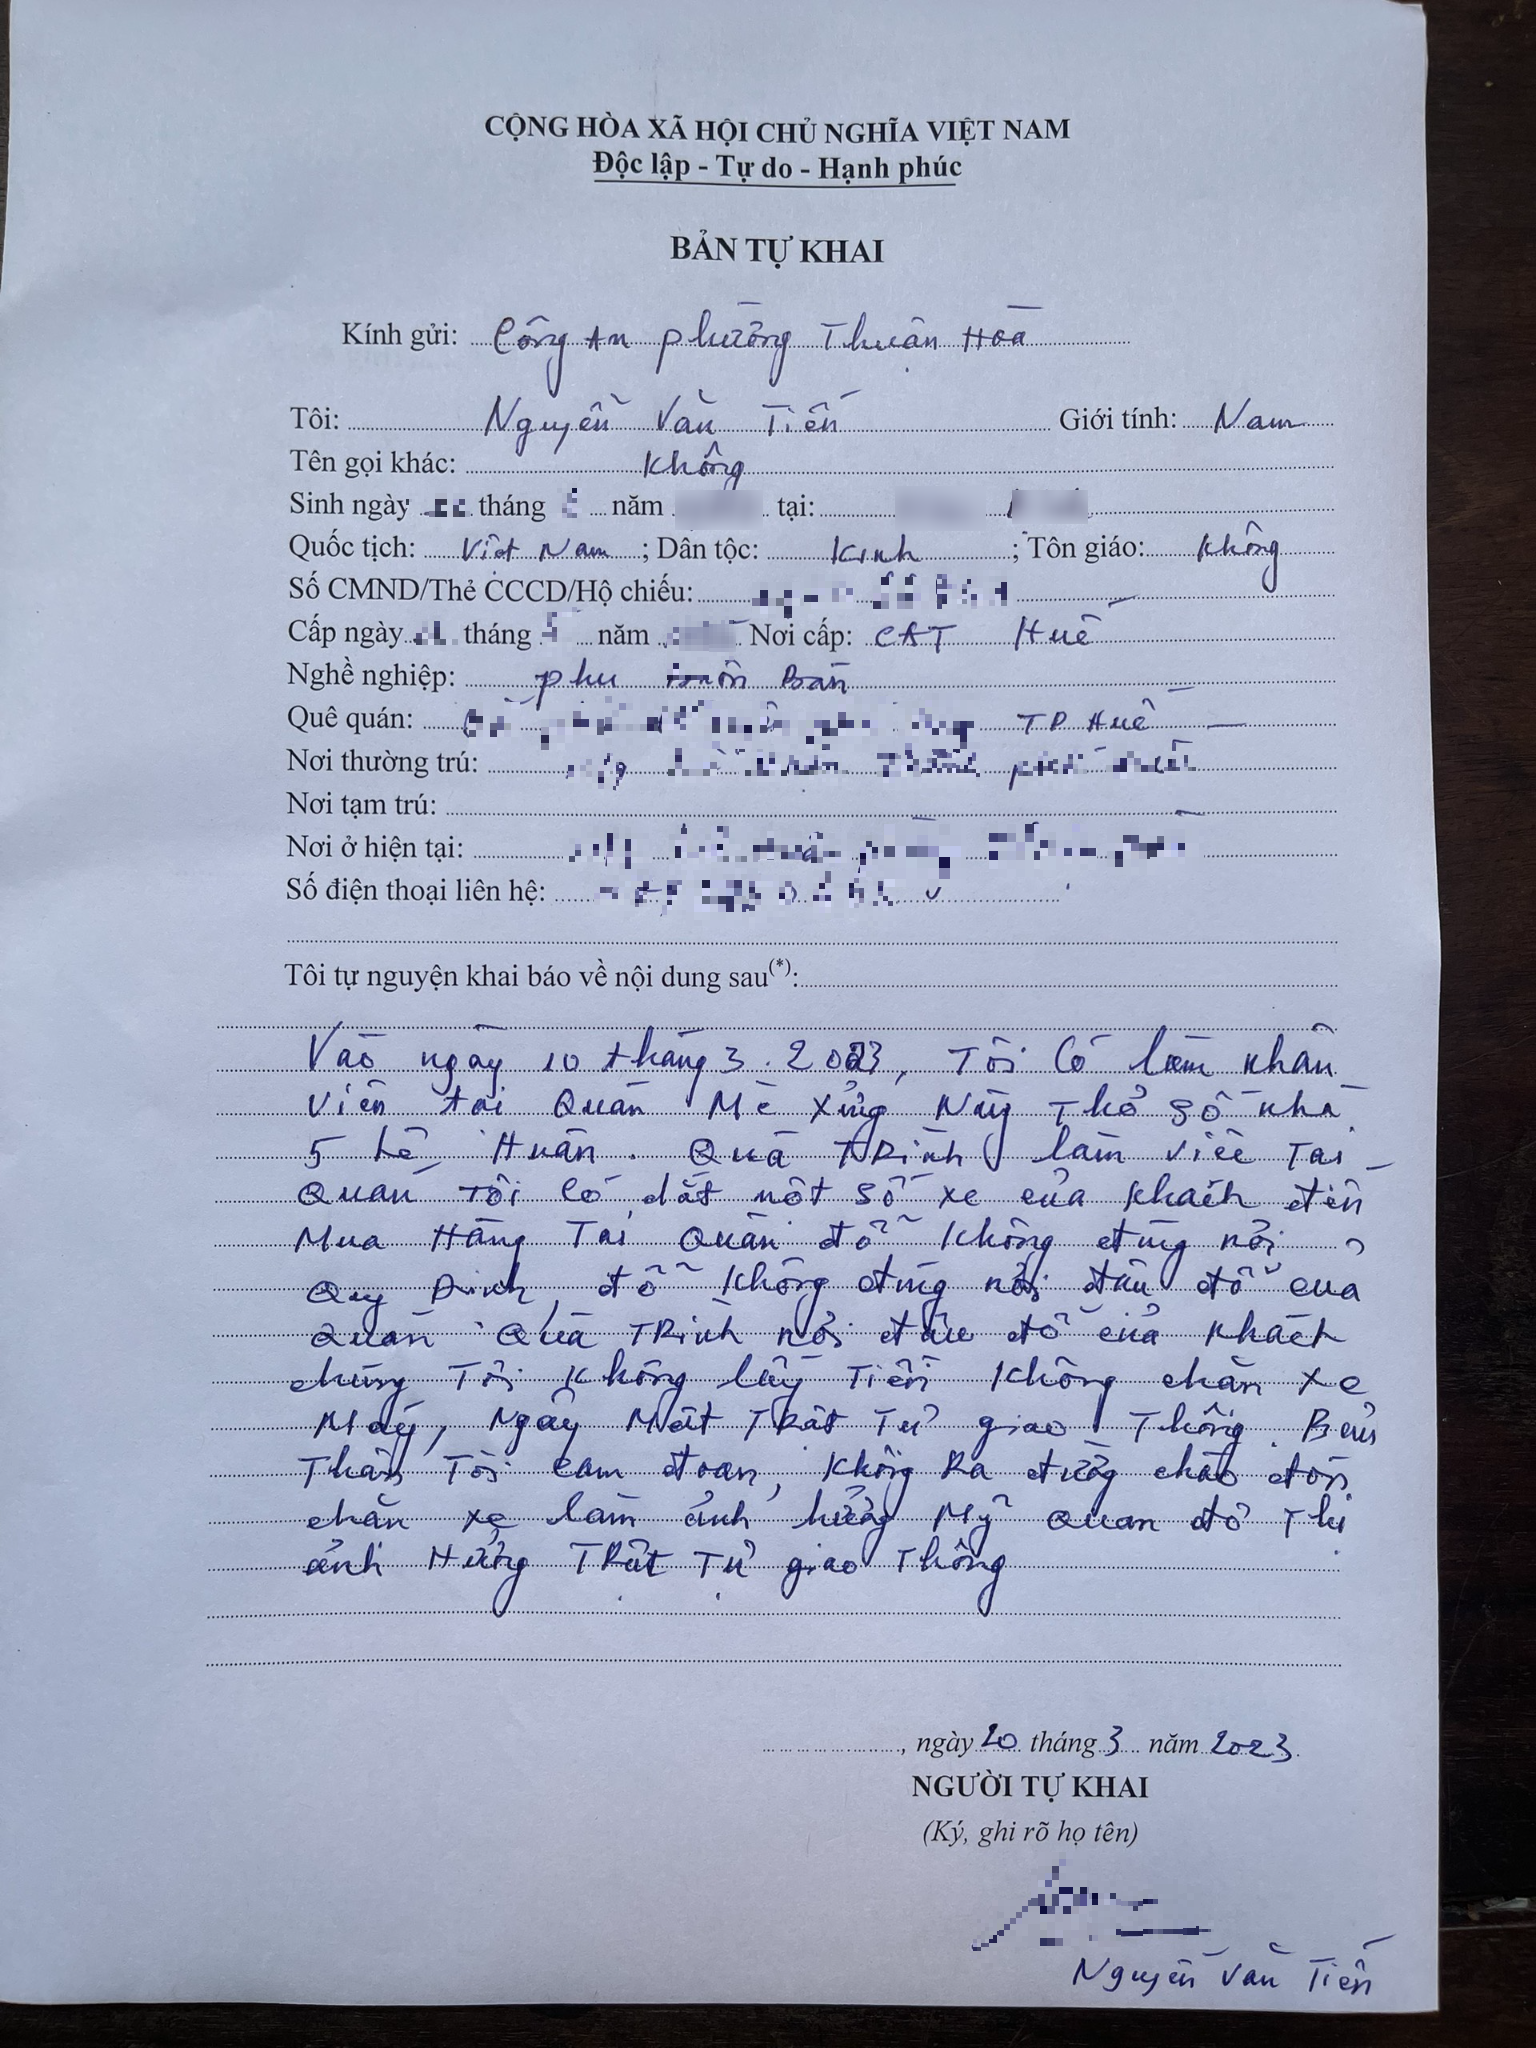 CỘNG HÒA XÃ HỘI CHỦ NGHĨA VIỆT NAM
Độc lập - Tự do - Hạnh phúc
BẢN TỰ KHAI
Kính gửi: Công An phường Thuận Hòa
Tôi: Nguyễn Văn Tiến Giới tính: Nam
Tên gọi khác: Không
Sinh ngày tháng năm tại:
Quốc tịch: Việt Nam ; Dân tộc: Kinh ; Tôn giáo: Không
Số CMND/Thẻ CCCD/Hộ chiếu:
Cấp ngày tháng năm Nơi cấp: CAT Huế
Nghề nghiệp: phu Bán
Quê quán: TP Huế
Nơi thường trú:
Nơi tạm trú:
Nơi ở hiện tại:
Số điện thoại liên hệ:
Tôi tự nguyện khai báo về nội dung sau(*):
Vào ngày 10 tháng 3.2023, Tôi Có làm nhân
viên tại Quán Mè Xửng Nây Thơ số nhà
5 Lê Huân. Quá TRình làm việc Tại
Quán Tôi Có dắt một số xe của Khách đến
Mua Hàng Tại Quán đỗ Không đúng nơi
Quy Định, đỗ Không đúng nơi đậu đỗ của
Quán Quá TRình nơi đậu đỗ của Khách
chúng Tôi Không lấy Tiền Không chặn xe
Máy, Ngây Mất TRật Tự giao Thông. Bản
Thân Tôi cam đoan, Không Ra đường chào đón
chặn xe làm ảnh hưởng Mỹ Quan đô Thị
ảnh Hưởng TRật Tự giao Thông
, ngày 20 tháng 3 năm 2023
NGƯỜI TỰ KHAI
(Ký, ghi rõ họ tên)
Nguyễn Văn Tiến